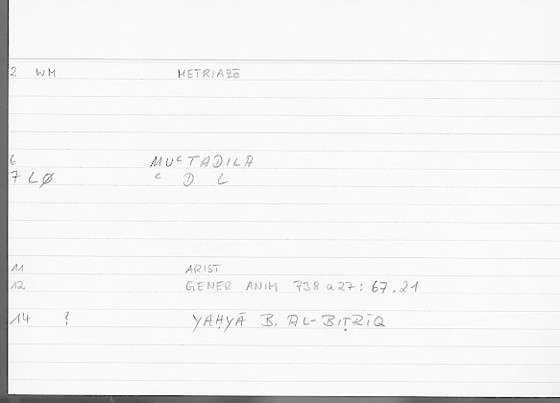 2 WM METRIAZŌ
6 MUᶜTADILA
7 LØ ᶜ D L
11 ARIST
12 GENER ANIM 738 a 27 : 67.21
14 ? YAḤYĀ B. AL-BIṬRĪQ